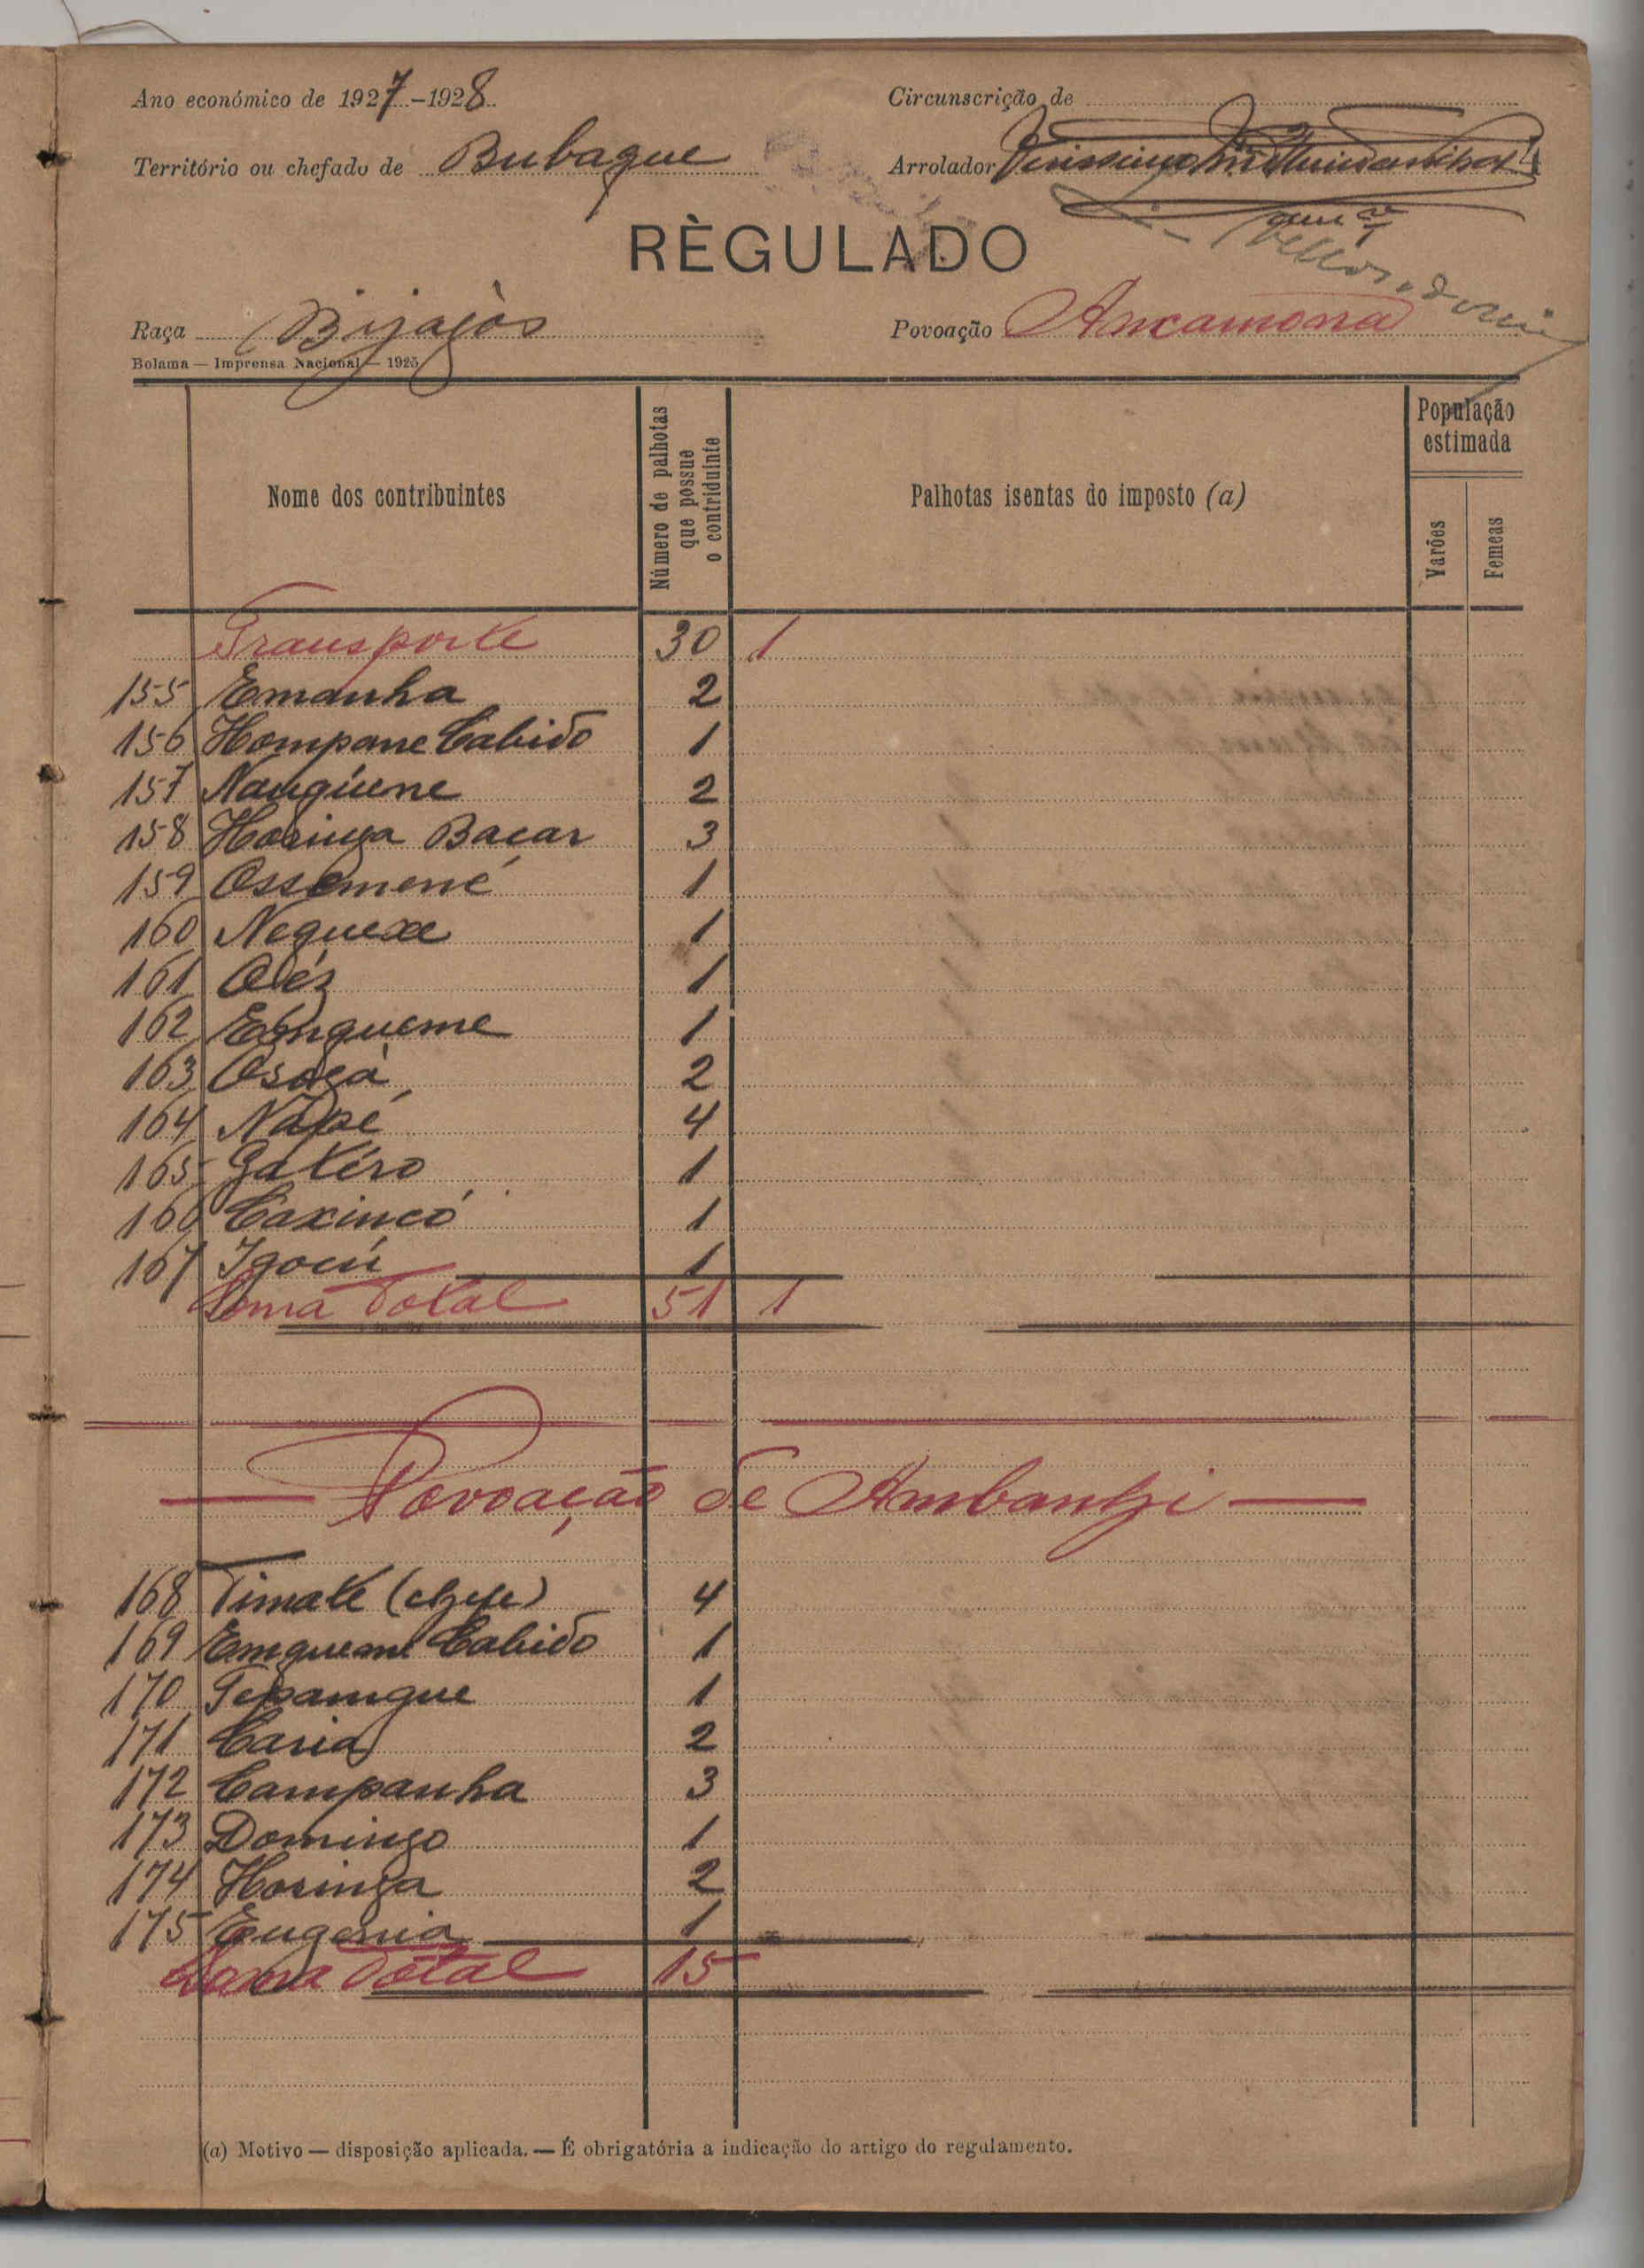 Ano económico de 1927-1928
Circunscrição de
Território ou chefado de Bubaque
Arrolador
RÈGULADO
Raça Bijagós
Povoação Ancamona
Bolama — Imprensa Nacional — 1925
Nome dos contribuintes
Número de palhotas que possue o contriduinte
Palhotas isentas do imposto (a)
População estimada
Varões
Femeas
Transporte 30 1
155 Emanha 2
156 Hompane Cabido 1
157 Nanguene 2
158 Horinga Bacar 3
159 Ossemené 1
160 Nequexe 1
161 1
162 Eenqueme 1
163 2
164 Napé 4
165 Gatéro 1
166 Caxincó 1
167 Igocú 1
Soma Total 51 1
Povoação de Ambanhi
168 Timate (chefe) 4
169 Emqueme Cabido 1
170 Tepamgue 1
171 Caria 2
172 Campanha 3
173 Domingo 1
174 Horinga 2
175 Eugenia 1
Soma Total 15
(a) Motivo — disposição aplicada. — É obrigatória a indicação do artigo do regulamento.